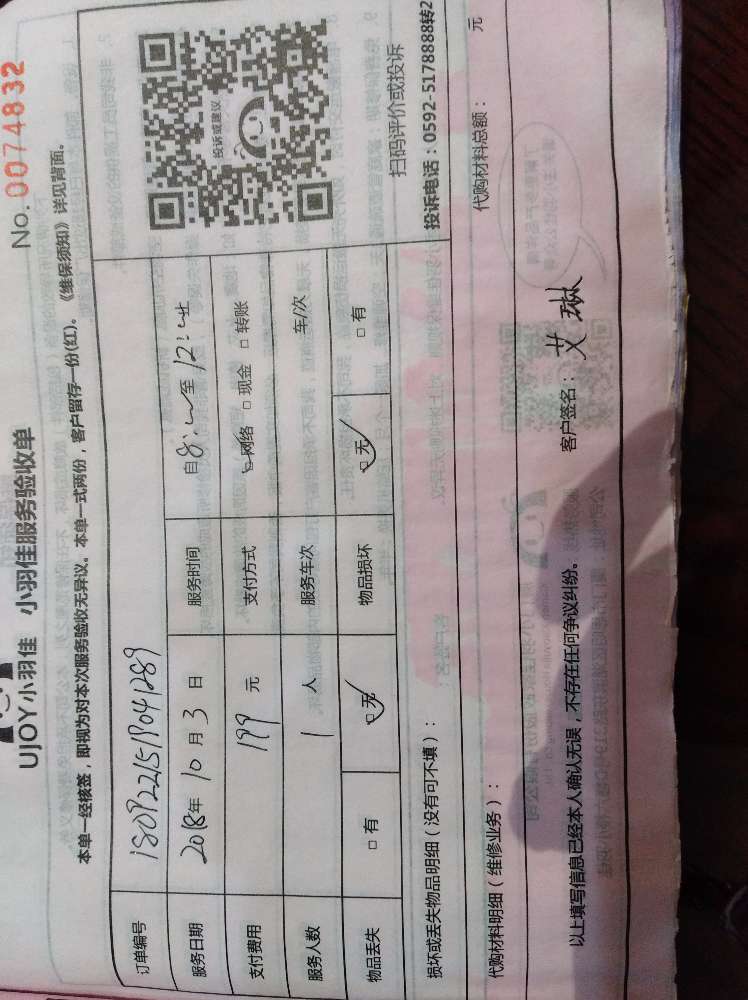 UJOY小羽佳 小羽佳服务验收单 No. 0074832
本单一经核签，即视为对本次服务验收无异议。本单一式两份，客户留存一份(红)。《维保须知》详见背面。
订单编号
服务日期 2018年10月3日 服务时间 自8: 至12:
支付费用 199 元 支付方式 网络 □现金 □转账
服务人数 1 人 服务车次 车/次
物品丢失 □有 □无 物品损坏 □无 □有
投诉或建议
扫码评价或投诉
投诉电话：0592-5178888转2
损坏或丢失物品明细（没有可不填）：
代购材料明细（维修业务）： 代购材料总额： 元
以上填写信息已经本人确认无误，不存在任何争议纠纷。 客户签名：艾琳